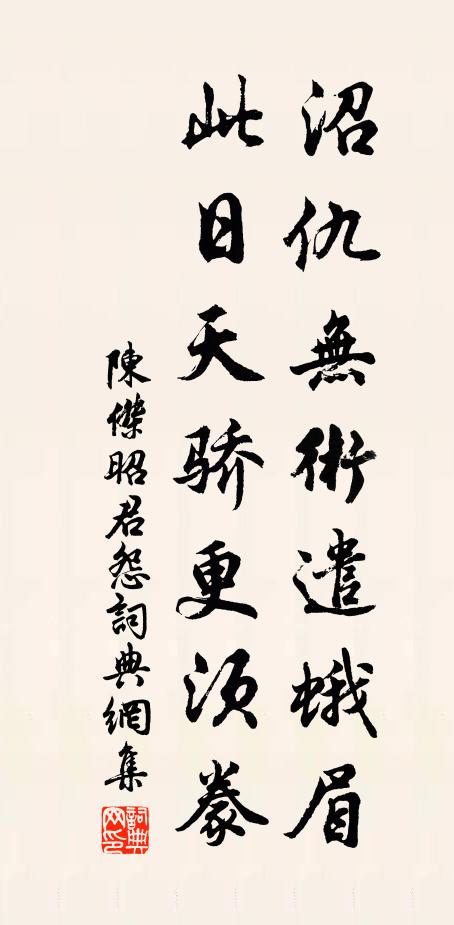 沼仇無術遣蛾眉
此日天骄更须豢
陳傑昭君怨詞典網集
詞典